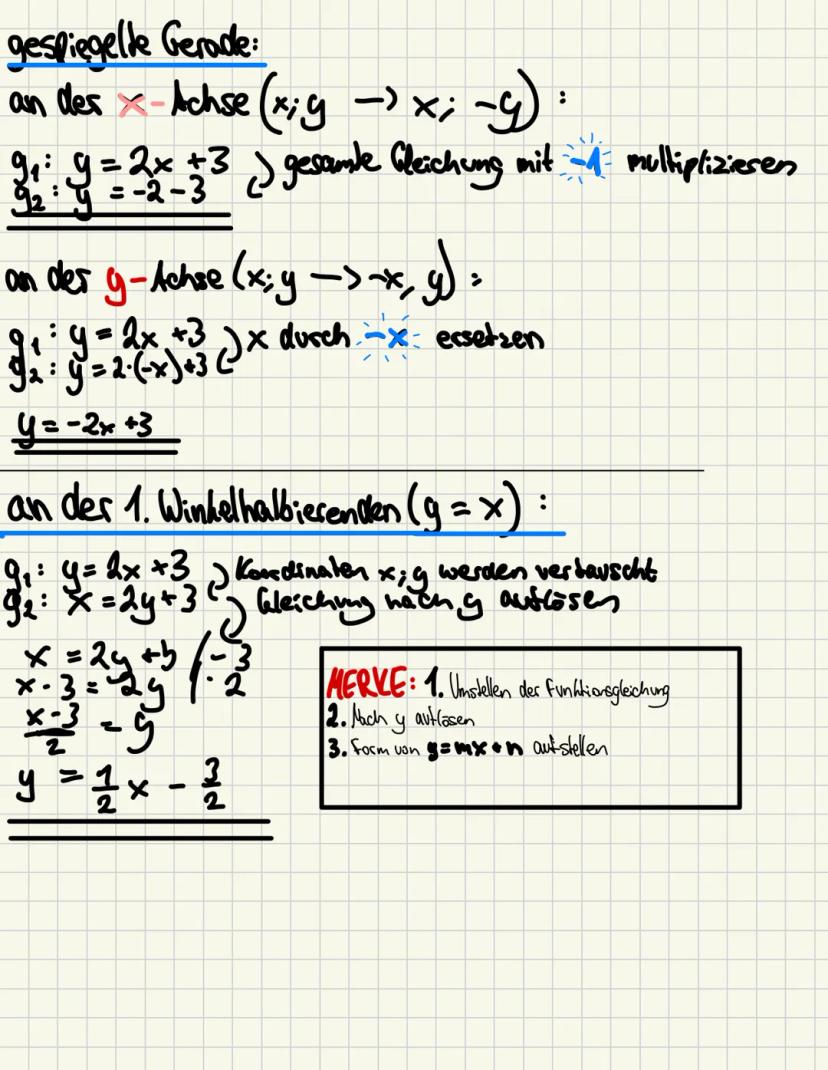 gespiegelte Gerade:
an der x-Achse (x; y -> x; -y) :
g₁: y = 2x + 3 gesamte Gleichung mit -1 multiplizieren
g₂: y = -2 - 3
an der y-Achse (x; y -> -x, y) :
g₁: y = 2x + 3 x durch -x ersetzen
g₂: y = 2·(-x) + 3
y = -2x + 3
an der 1. Winkelhalbierenden (y = x) :
g₁: y = 2x + 3 Koordinaten x; y werden vertauscht
g₂: x = 2y + 3 Gleichung nach y auflösen
x = 2y + 3 / - 3
x - 3 = 2y / : 2
x - 3 / 2 = y
y = 1/2 x - 3/2
MERKE: 1. Umstellen der Funktionsgleichung
2. Nach y auflösen
3. Form von y = mx + n aufstellen